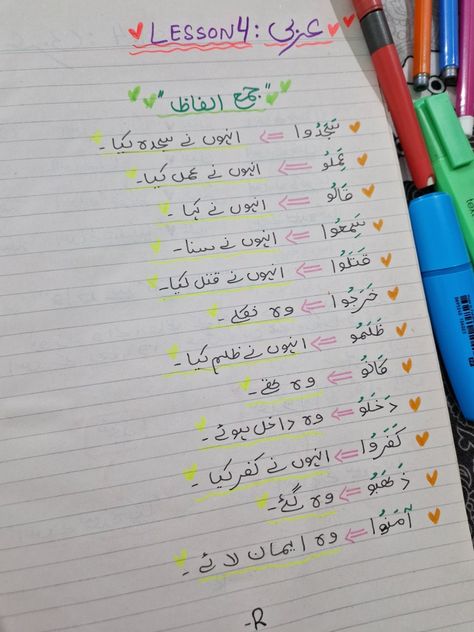 عربی : LESSON 4
"جمع الفاظ"
سَجَدُوا ⇐ انہوں نے سجدہ کیا -
عَمِلُو ⇐ انہوں نے عمل کیا -
قَالُو ⇐ انہوں نے کہا -
سَمِعُوا ⇐ انہوں نے سنا -
قَتَلُوا ⇐ انہوں نے قتل کیا -
خَرَجُوا ⇐ وہ نکلے -
ظَلَمُو ⇐ انہوں نے ظلم کیا -
کَانُو ⇐ وہ تھے -
دَخَلُو ⇐ وہ داخل ہوئے -
کَفَرُوا ⇐ انہوں نے کفر کیا -
ذَهَبُو ⇐ وہ گئے -
آمَنُوا ⇐ وہ ایمان لائے -
-R